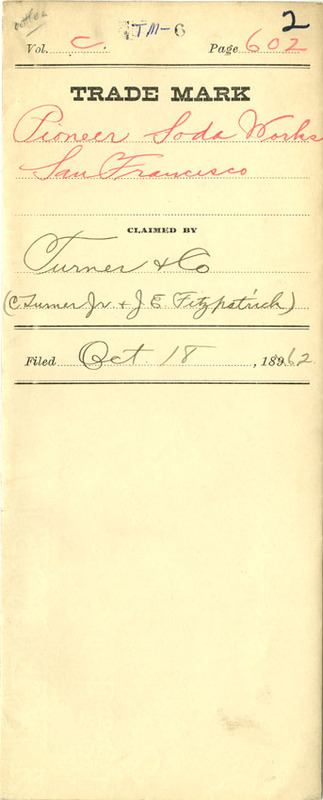 TM-6 2
Vol. C. Page 602
TRADE MARK
Pioneer Soda Works
San Francisco
CLAIMED BY
Turner & Co
(C. Turner Jr. & J. E. Fitzpatrick)
Filed Oct. 18, 1862